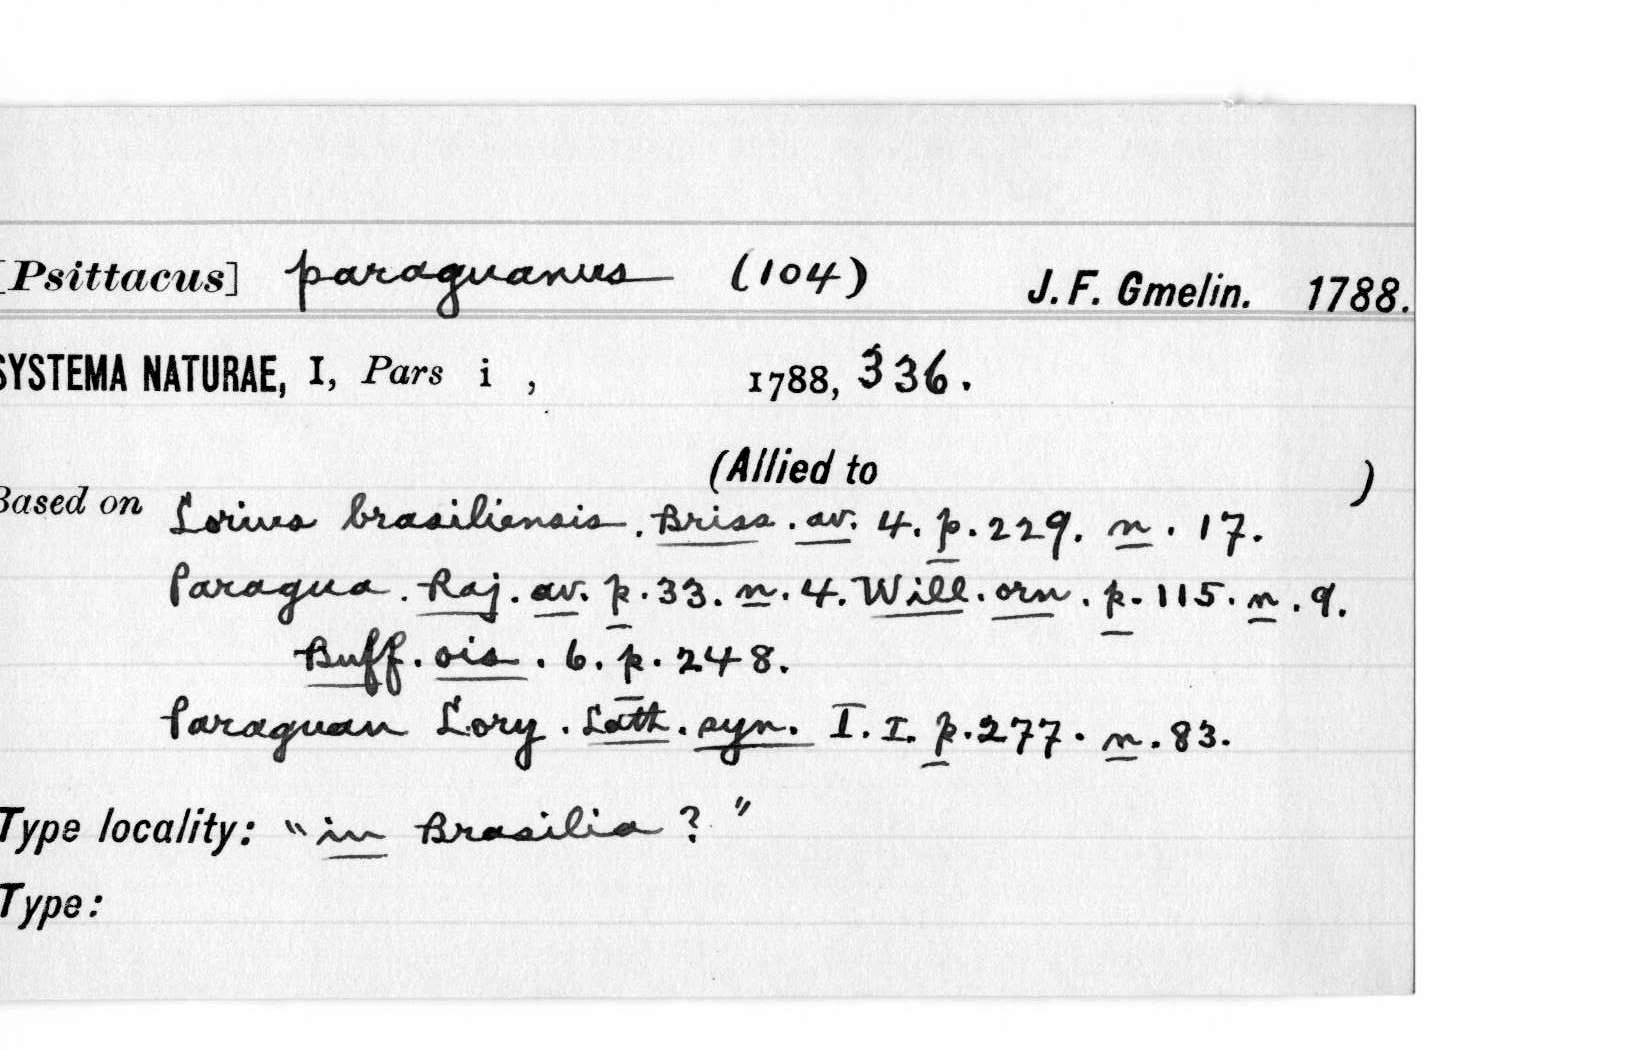 [Psittacus] paraguanus (104) J. F. Gmelin. 1788.
SYSTEMA NATURAE, I, Pars i , 1788, 336.
(Allied to )
Based on Lorius brasiliensis. Briss. av. 4. p. 229. n. 17.
Paragua. Raj. av. p. 33. n. 4. Will. orn. p. 115. n. 9.
Buff. ois. 6. p. 248.
Paraguan Lory. Lath. syn. I. I. p. 277. n. 83.
Type locality: "in Brasilia ?"
Type: